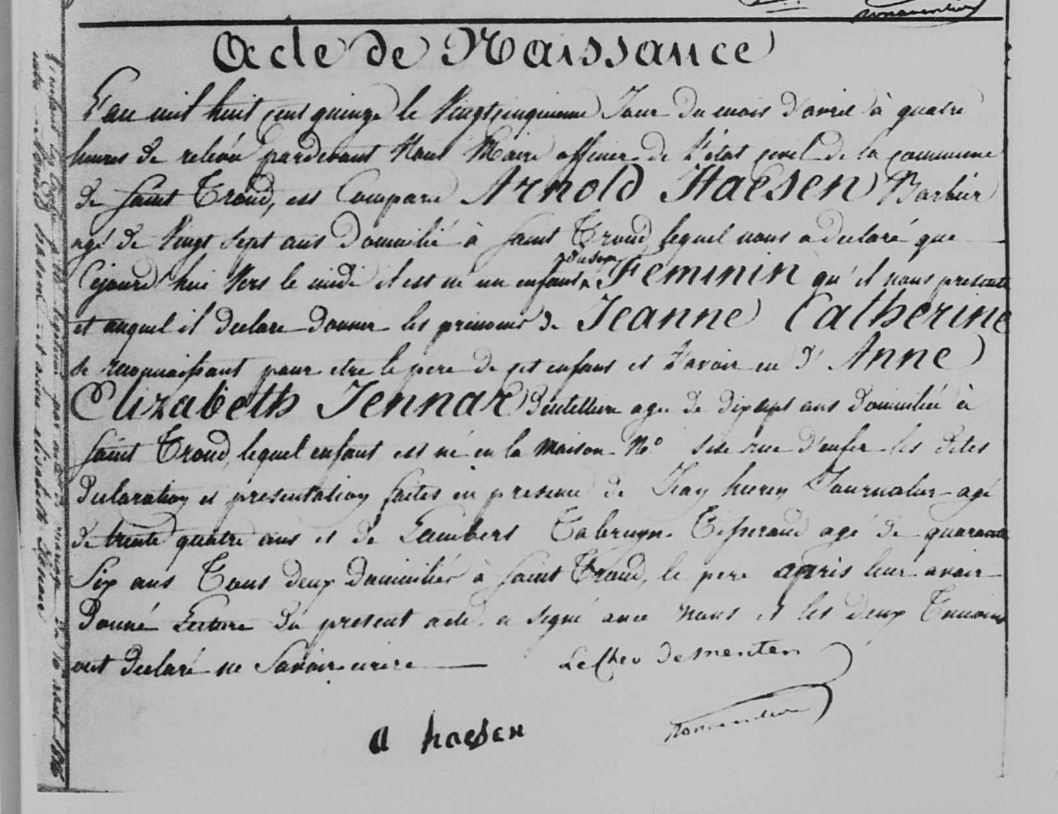 Acte de Naissance
L'an mil huit cent quinze le Vingtcinquieme Jour du mois d'avril à quatre
heures de relevée pardevant Nous Maire officier de l'état civil de la commune
de Saint Trond, est Comparu Arnold Haesen Barbier
agé de Vingt Sept ans Domicilié à Saint Trond, lequel nous a declaré que
Cejourd'hui Vers le midi il est né un enfant du sexe Feminin qu'il nous presente
et auquel il declare donner les prenoms de Jeanne Catherine
se reconnaissant pour etre le pere de cet enfant et L'avoir eu d'Anne
Elizabeth Jennar Dentelliere agée de dixsept ans domiciliée à
Saint Trond, lequel enfant est né en la maison No sise rue d'enfer les dites
Declaration et presentation faites en presence de Journalier agé
de trente quatre ans et de Lambert Tabruyn Tisserand agé de quarante
Six ans Tous deux Domiciliés à Saint Trond, le pere après leur avoir
Donné Lecture Du present acte a signé avec Nous et les deux Temoins
ont declaré ne Savoir ecrire
Le Chev de menten
a haesen